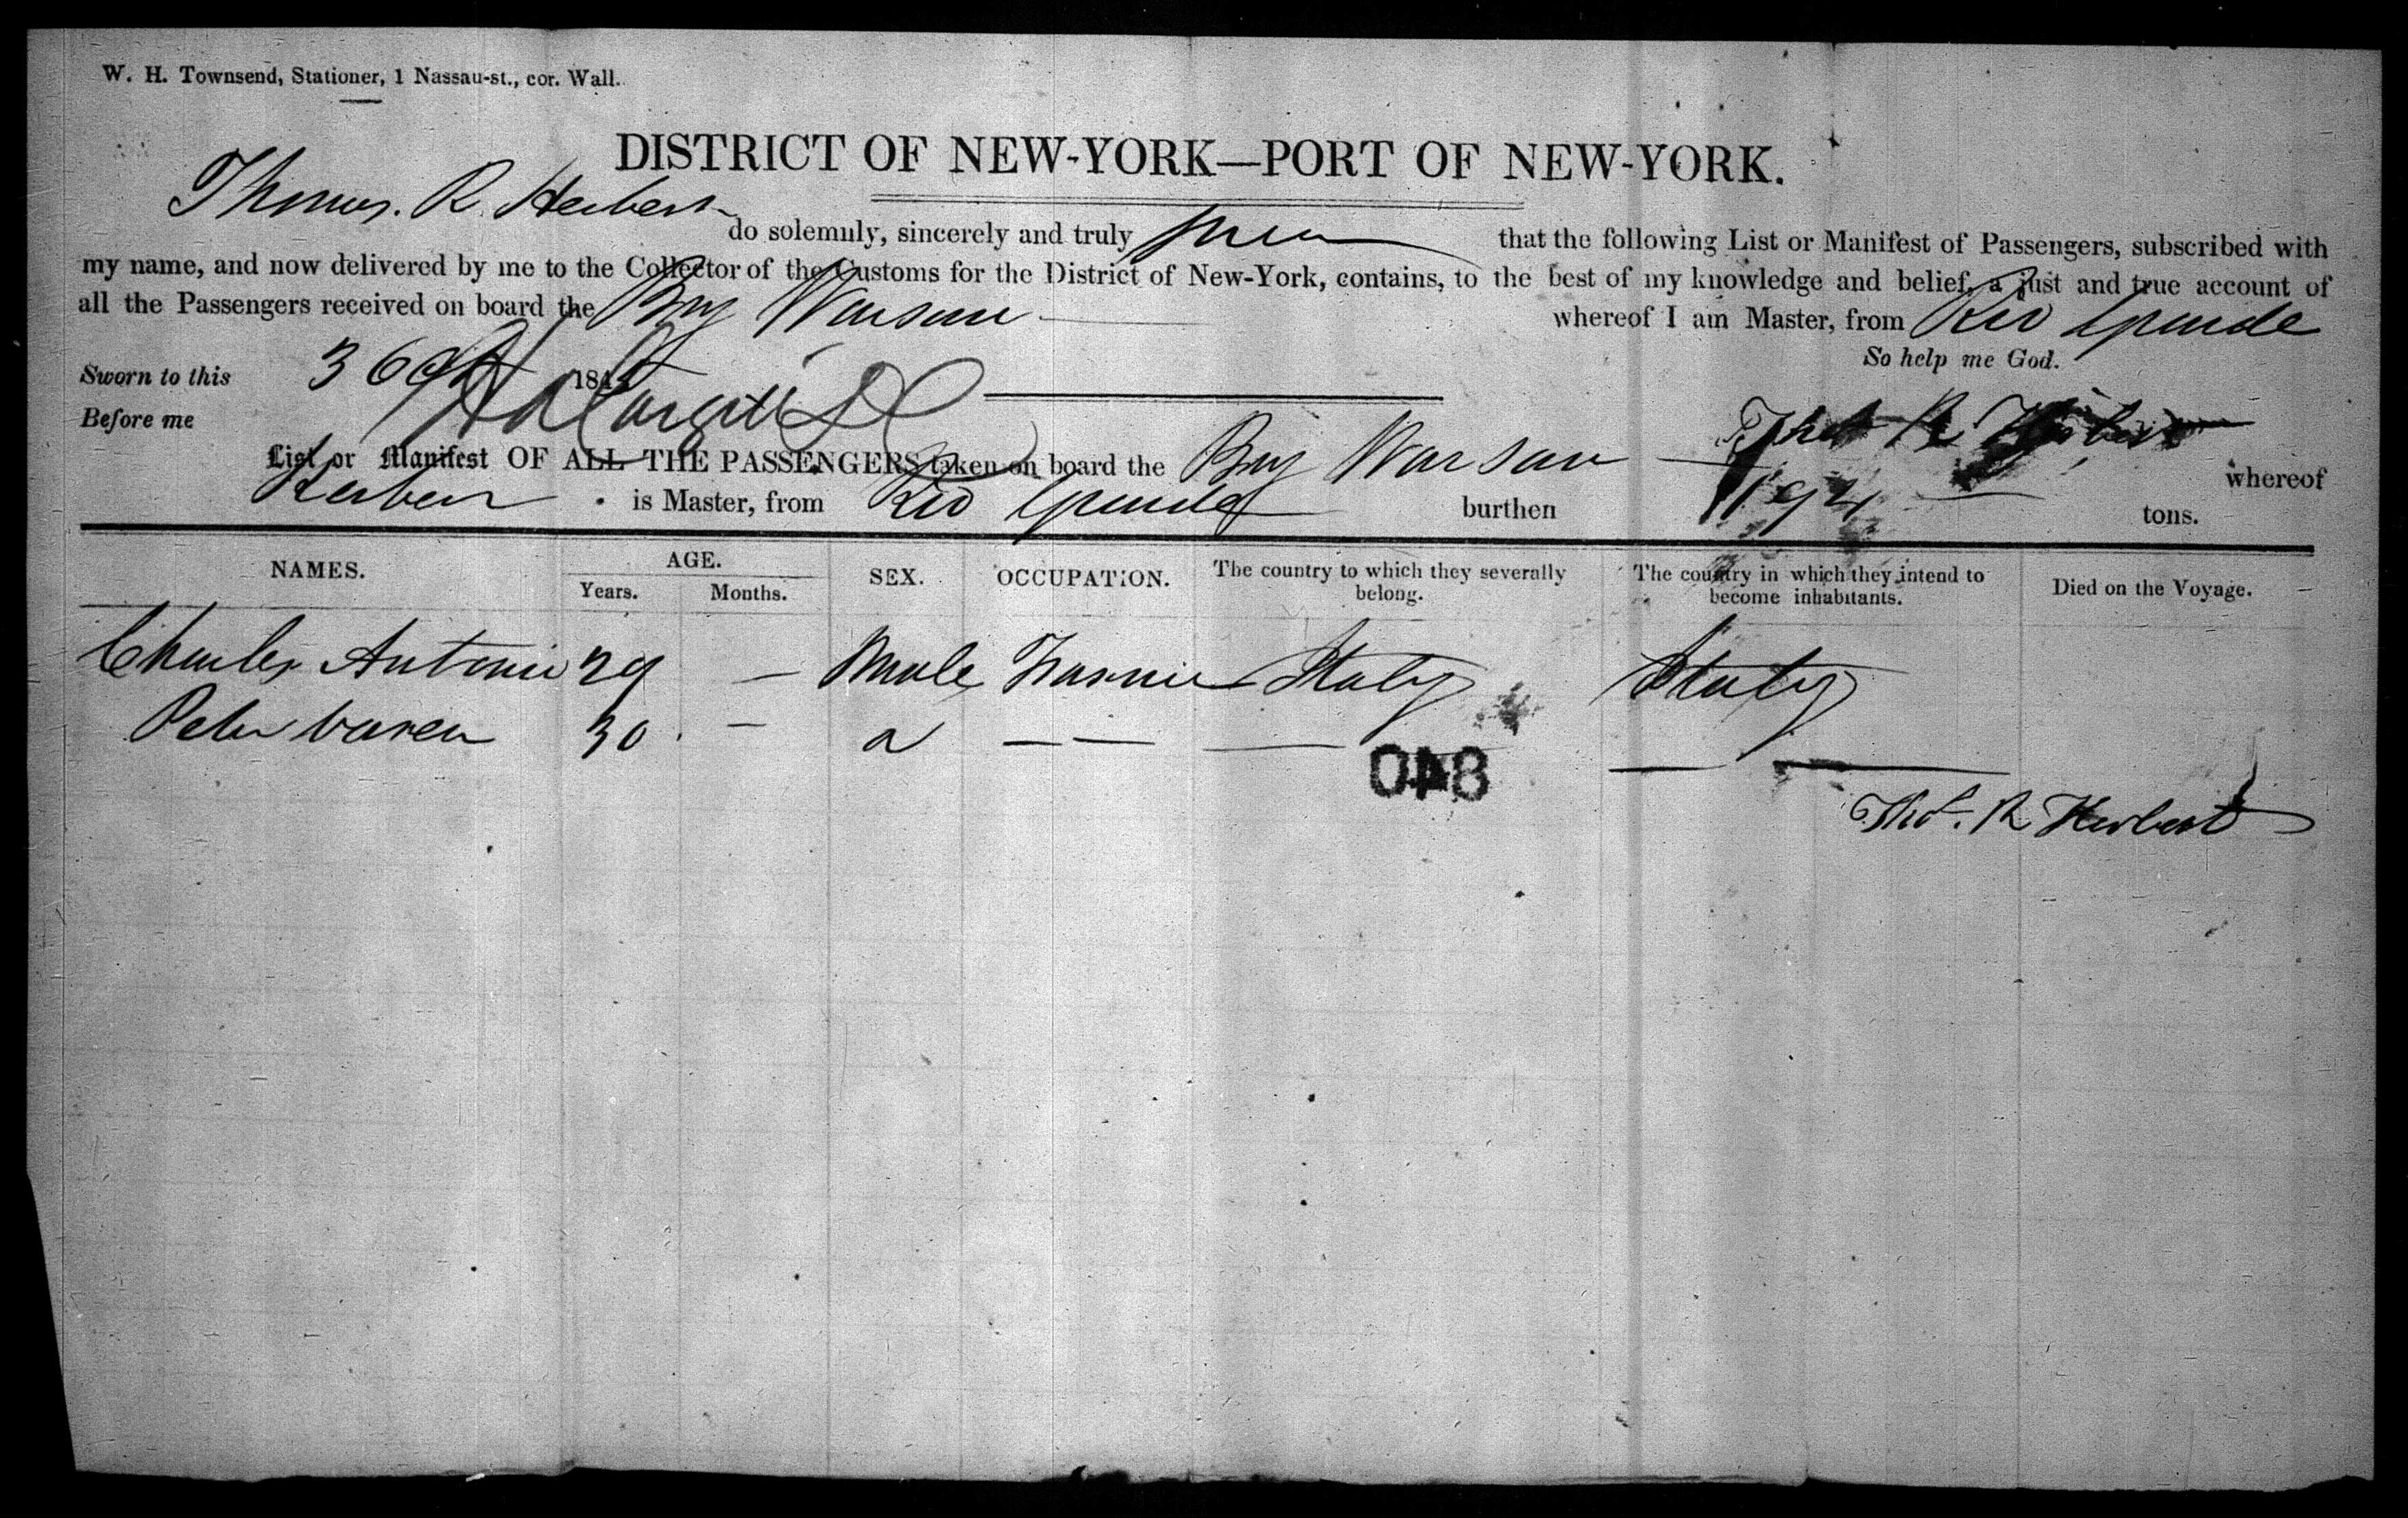 W. H. Townsend, Stationer, 1 Nassau-st., cor. Wall.
DISTRICT OF NEW-YORK—PORT OF NEW-YORK.
Thomas. R. Herbert do solemnly, sincerely and truly that the following List or Manifest of Passengers, subscribed with
my name, and now delivered by me to the Collector of the Customs for the District of New-York, contains, to the best of my knowledge and belief, a just and true account of
all the Passengers received on board the Brig Warsaw whereof I am Master, from Rio Grande
So help me God.
Sworn to this 184
Before me Thos R Herbert
List or Manifest OF ALL THE PASSENGERS taken on board the Brig Warsaw whereof
Herbert is Master, from Rio Grande burthen 194 tons.
NAMES. AGE. SEX. OCCUPATION. The country to which they severally belong. The country in which they intend to become inhabitants. Died on the Voyage.
Years. Months.
Charles Antonio 29 — Male Italy Italy
Peter 30 — —— — —
048
Thos. R Herbert